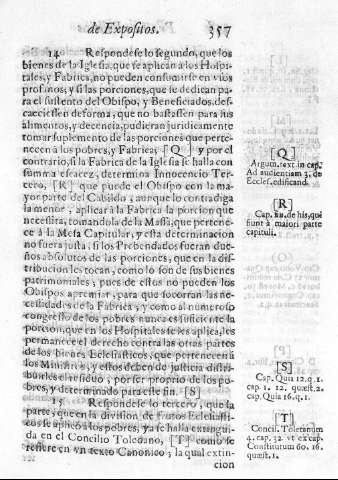 de Expositos. 357
14 Respondese lo segundo, que los
bienes de la Iglesia, que se aplican à los Hospi-
tales, y Fabrica, no pueden consumirse en vsos
profanos; y si las porciones, que se dedican pa-
ra el sustento del Obispo, y Beneficiados, des-
caeciessen de forma, que no bastassen para sus
alimentos, y decencia, pudieran juridicamente
tomar suplemento de las porciones que perte-
necen à los pobres, y Fabrica; [Q] y por el
contrario, si la Fabrica de la Iglesia se halla con
suma escacez, determina Innocencio Ter-
cero, [R] que puede el Obispo con la ma-
yor parte del Cabildo, aunque lo contradiga
la menor, aplicar à la Fabrica la porcion que
necessita, tomandola de la Massa, que pertene-
ce à la Mesa Capitular, y esta determinacion
no fuera justa, si los Prebendados fueran due-
ños absolutos de las porciones, que en la dis-
tribucion les tocan, como lo son de sus bienes
patrimoniales, pues de estos no pueden los
Obispos apremiar, para que socorran las ne-
cessidades de la Fabrica, y como al numeroso
congresso de los pobres nunca es suficiente la
porcion, que en los Hospitales se les aplica, les
permanece el derecho contra las otras partes
de los bienes Eclesiasticos, que pertenecen à
los Ministros, y estos deben de justicia distri-
buirles el residuo, por ser proprio de los po-
bres, y determinado para este fin. [S]
15 Respondese lo tercero, que la
parte, que en la division de frutos Eclesias-
cos se aplicò à los pobres, ya se halla extingui-
da en el Concilio Toledano, [T] como se
refiere en vn texto Canonico; la qual extin-
cion
[Q]
Argum. text. in cap.
Ad audientiam 3. de
Eccles. ædificand.
[R]
Cap. fin. de his, quæ
fiunt à maiori parte
capituli.
[S]
Cap. Quia 12. q. 1.
cap. 1. 12. quæst. 2.
cap. Quia 16. q. 1.
[T]
Concil. Toletanum
4. cap. 32. vt ex cap.
Constitutum 60. 16.
quæst. 1.